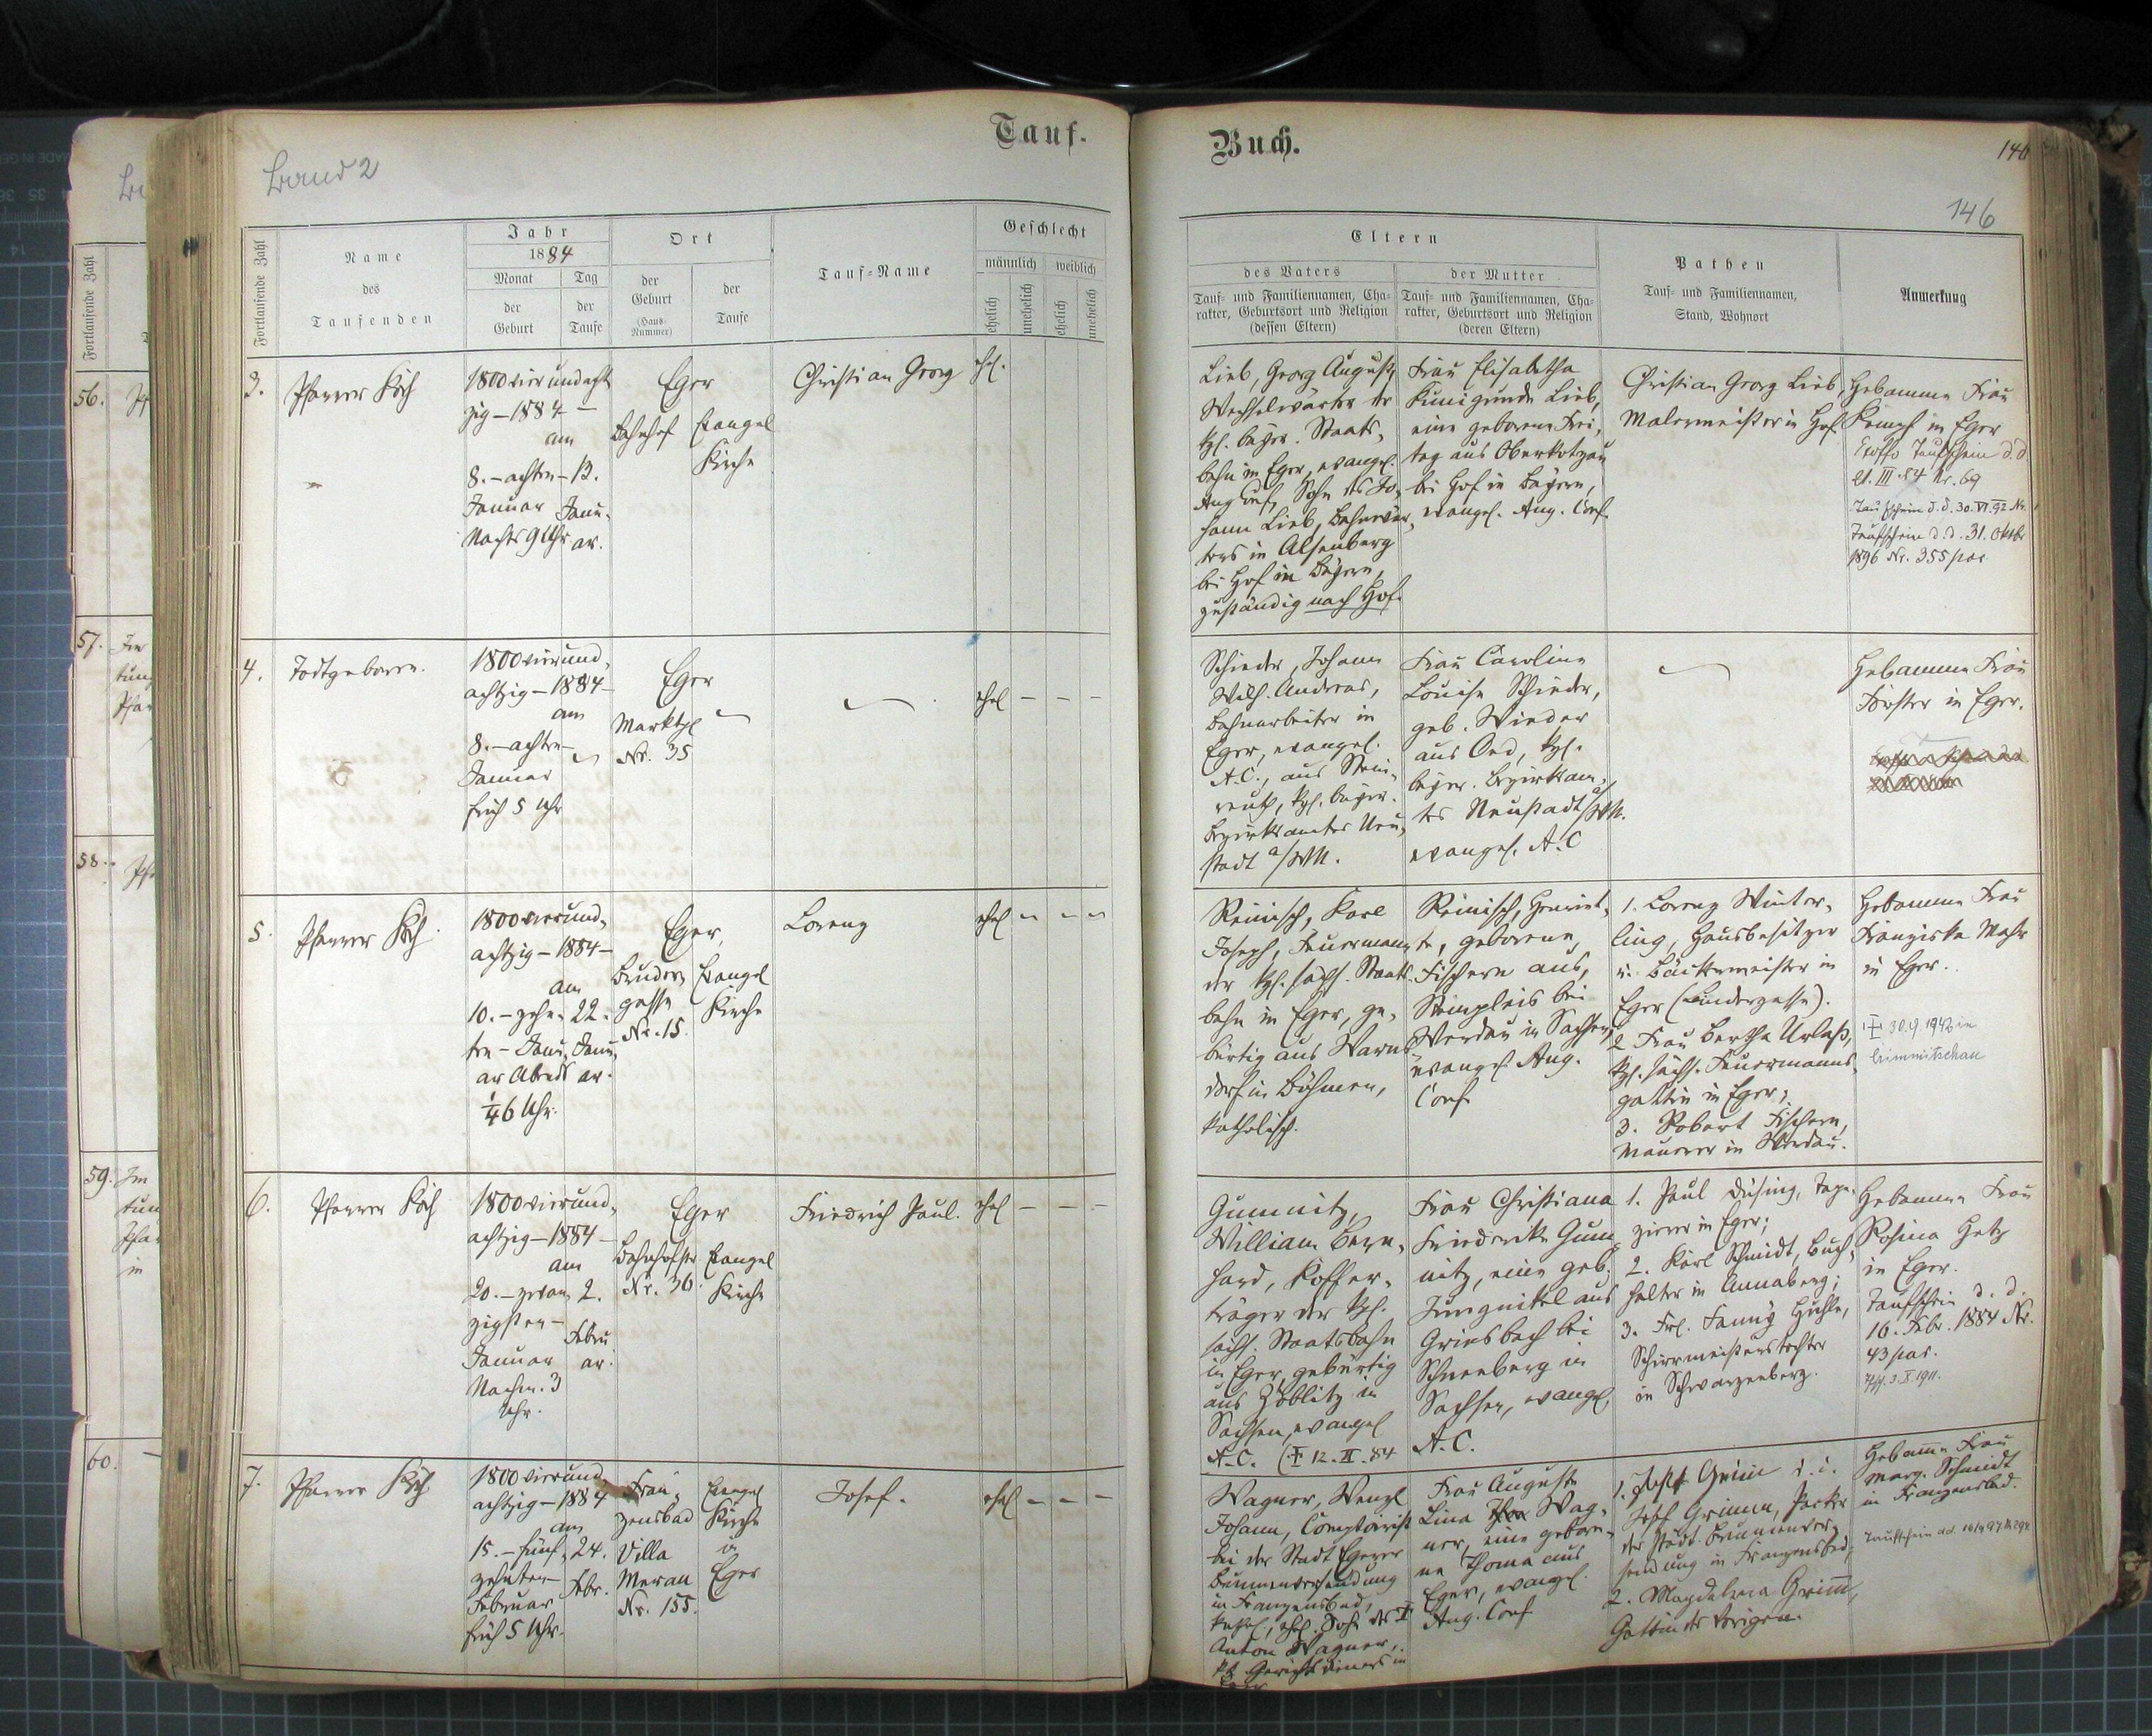 Tauf-
Buch.
Band 2
146
146
Fortlaufende Zahl
Name
des
Taufenden
Jahr
1884
Monat
der
Geburt
Tag
der
Taufe
Ort
der
Geburt
(Haus-
Nummer)
der
Taufe
Tauf-Name
Geschlecht
männlich
weiblich
ehelich
unehelich
ehelich
unehelich
Eltern
des Vaters
Tauf- und Familiennamen, Cha-
rakter, Geburtsort und Religion
(dessen Eltern)
der Mutter
Tauf- und Familiennamen, Cha-
rakter, Geburtsort und Religion
(deren Eltern)
Pathen
Tauf- und Familiennamen,
Stand, Wohnort
Anmerkung
Fortlaufende Zahl
56.
57.
58.
59. Im
60.
3.
Pfarrer Koch
1800 vier und acht
zig - 1884 -
am
8. - achten -
Januar
Nachts 9 Uhr
13.
Janu-
ar.
Eger
Bahnhof
Evangel
Kirche
Christian Georg
ehel.
Lieb, Georg August,
Wechselwärter der
kgl. bayer. Staats-
bahn in Eger, evangel.
Augs. Conf., Sohn des Jo-
hann Lieb, Bahnwär-
ters in Alsenberg
bei Hof in Bayern,
zuständig nach Hof.
Frau Elisabetha
Kunigunde Lieb,
eine geborene Frei-
tag aus Oberkotzau
bei Hof in Bayern,
evangel. Aug. Conf.
Christian Georg Lieb,
Malermeister in Hof.
Hebamme Frau
Kempf in Eger
Taufschein d.d.
21. III. 84 Nr. 69
Taufschein d.d. 30. VI. 92 Nr.
Taufschein d.d. 31. Oktbr
1896 Nr. 355
4.
Todtgeboren.
1800 vierund-
achtzig - 1884 -
am
8. - achten -
Januar
früh 5 Uhr
Eger
Marktpl
Nr. 35
ehel - - -
Schieder, Johann
Wilh. Andreas,
Bahnarbeiter in
Eger, evangel.
A.C., aus Stein-
reuth, kgl. bayer.
Bezirksamtes Neu-
stadt a/WN.
Frau Caroline
Louise Schieder,
geb. Wieder
aus Oed, kgl.
bayer. Bezirksam-
tes Neustadt a/WN.
evangel. A.C
Hebamme Frau
Förster in Eger.
5.
Pfarrer Koch
1800 vierund-
achtzig - 1884 -
am
10. - zehn-
ten - Janu-
ar Abends
1/4 6 Uhr.
22.
Janu-
ar.
Eger,
Bruder-
gasse
Nr. 15.
Evangel
Kirche
Lorenz
ehel - - -
Reinisch, Karl
Joseph, Feuermann
der kgl. sächs. Staats-
bahn in Eger, ge-
bürtig aus Warns-
dorf in Böhmen,
katholisch.
Reinisch, Henriet-
te, geborene
Fischern aus
Steinpleis bei
Werdau in Sachsen,
evangel. Aug.
Conf
1. Lorenz Winter-
ling, Hausbesitzer
u. Bäckermeister in
Eger (Brudergasse).
2 Frau Bertha Urlaß,
kgl. sächs. Feuermanns-
gattin in Eger;
3. Robert Fischern,
Maurer in Werdau.
Hebamme Frau
Franziska Mahr
in Eger.
30.9.1942 in
Crimmitschau
6.
Pfarrer Koch
1800 vierund-
achtzig - 1884 -
am
20. - zwan-
zigsten -
Januar
Nachm. 3
Uhr.
2.
Febru
ar.
Eger
Bahnhofstr
Nr. 36.
Evangel
Kirche
Friedrich Paul.
ehel - - -
Gumnitz,
William Bern-
hard, Koffer-
träger der kgl.
sächs. Staatsbahn
in Eger, gebürtig
aus Zöblitz in
Sachsen, evangel
A.C. († 12. II. 84
Frau Christiana
Friederike Gum-
nitz, eine geb.
Jungnikel aus
Griesbach bei
Schneeberg in
Sachsen, evangel.
A.C.
1. Paul Düsing, Tape-
zierer in Eger;
2. Karl Schmidt, Buch-
halter in Annaberg;
3. Frl. Fanny Huhle,
Schirrmeisterstochter
in Schwarzenberg.
Hebamme Frau
Rosina Hetz
in Eger.
Taufschein d.d.
16. Febr. 1884 Nr.
43
3. X. 1911.
7.
Pfarrer Koch
1800 vierund-
achtzig - 1884
am
15. - fünf-
zehnten
Februar
früh 5 Uhr.
24.
Febr.
Fran-
zensbad
Villa
Meran
Nr. 155.
Evangel
Kirche
in
Eger
Josef.
ehel - - -
Wagner, Wenzl
Johann, Comptoirist
bei der Stadt Egerer
Brunnenversendung
in Franzensbad,
kathol., ehel. Sohn des
Anton Wagner,
kk Gerichtsdieners in
Eger
Frau Auguste
Lina Wag-
ner, eine gebore-
ne Thoma aus
Eger, evangel.
Aug. Conf
1. Josef Grim d.i.
Josef Grimm, Packer
der städt. Brunnenver-
sendung in Franzensbad;
2. Magdalena Grim̄,
Gattin des Vorigen.
Hebamme Frau
Marg. Schmidt
in Franzensbad.
Taufschein